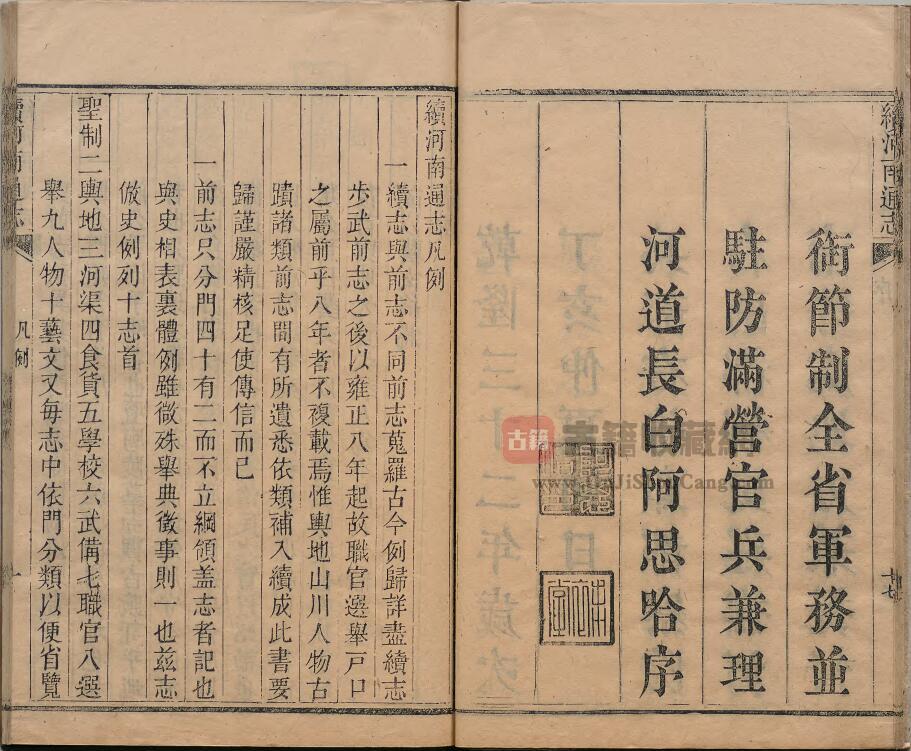 續河南通志
銜節制全省軍務並
駐防滿營官兵兼理
河道長白阿思哈序
續河南通志凡例
一續志與前志不同前志蒐羅古今例歸詳盡續志
步武前志之後以雍正八年起故職官選舉戸口
之屬前乎八年者不複載焉惟輿地山川人物古
蹟諸類前志間有所遺悉依類補入續成此書要
歸謹嚴精核足使傳信而已
一前志只分門四十有二而不立綱領盖志者記也
與史相表裏體例雖微殊舉典徵事則一也兹志
倣史例列十志首
聖制二輿地三河渠四食貨五學校六武備七職官八選
舉九人物十藝文又每志中依門分類以便省覽
續河南通志
凡例
一
古籍
www.GuJiShouCang.com